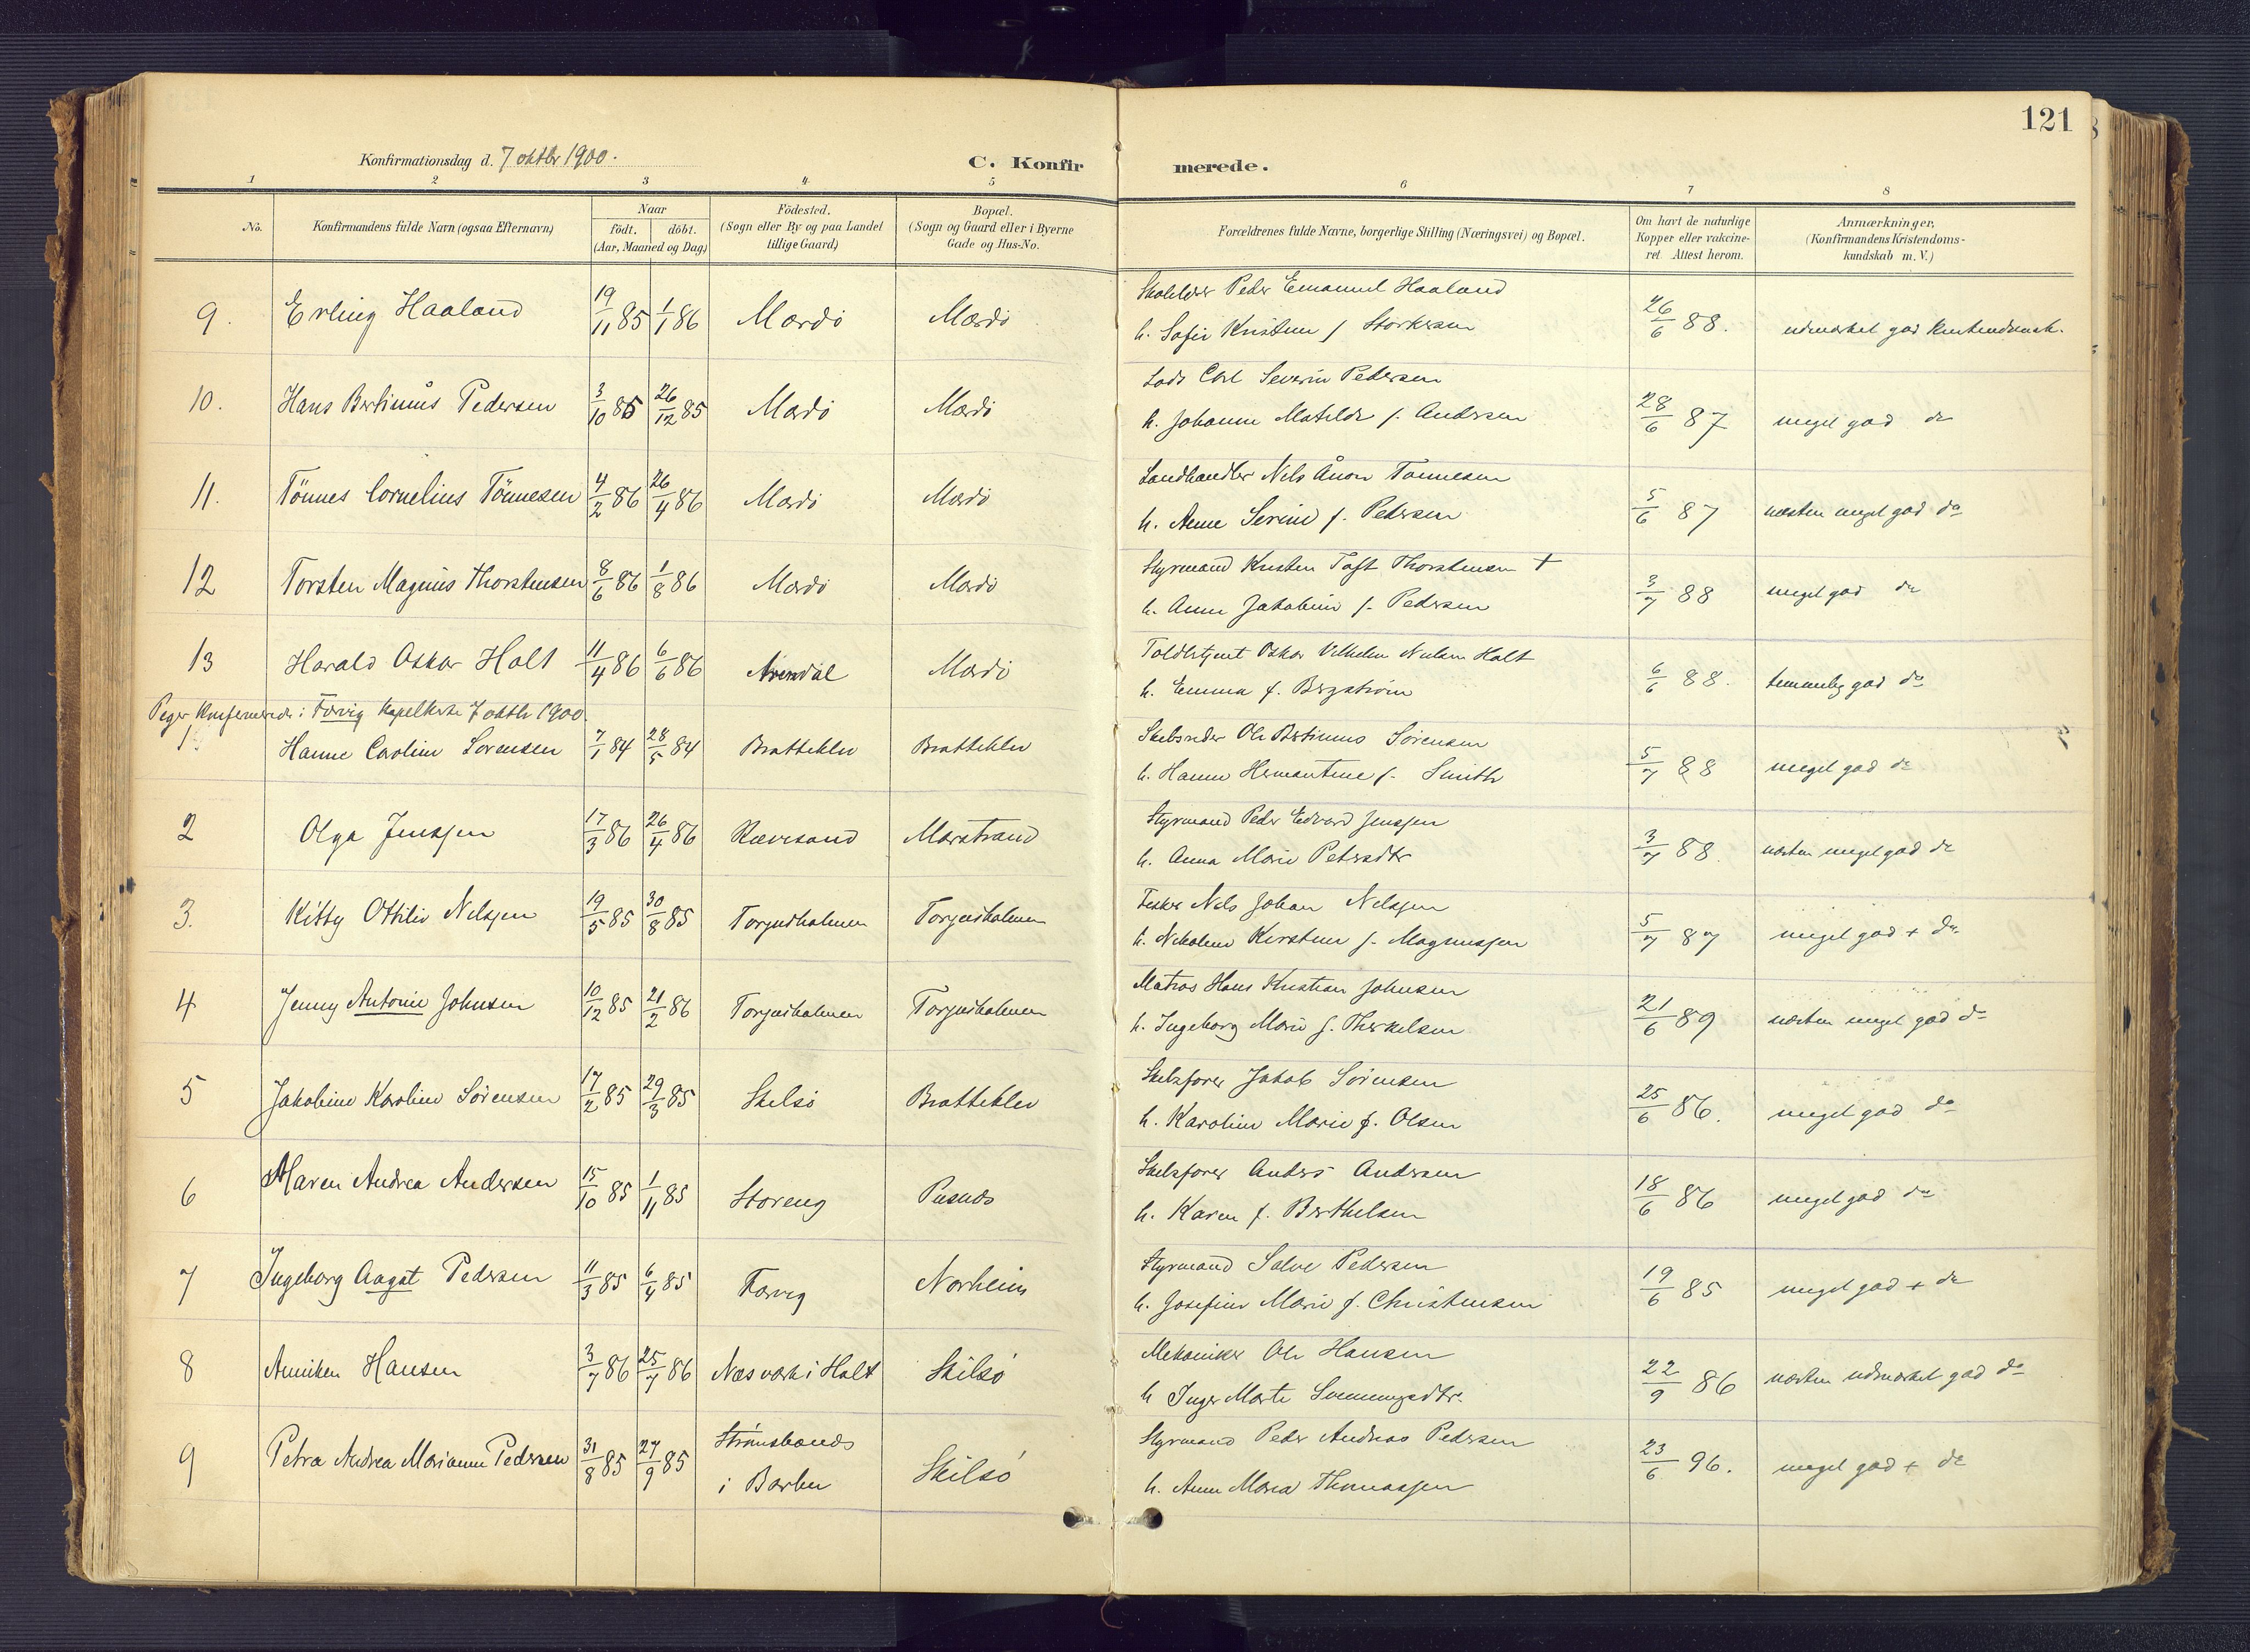 121
Konfirmationsdag d. 7 oktbr 1900.
C. Konfir merede.
1 2 3 4 5 6 7 8
No.
Konfirmandens fulde Navn (ogsaa Efternavn)
Naar
födt. döbt.
(Aar, Maaned og Dag)
Födested.
(Sogn eller By og paa Landet
tillige Gaard)
Bopæl.
(Sogn og Gaard eller i Byerne
Gade og Hus-No.
Forældrenes fulde Navne, borgerlige Stilling (Næringsvei) og Bopæl.
Om havt de naturlige
Kopper eller vakcine-
ret. Attest herom.
Anmærkninger,
(Konfirmandens Kristendoms-
kundskab m. V.)
9. Erling Haaland 19/11 85 1/1 86 Mærdö Mærdö
Peder Emanuel Haaland
h. Sofie Kristine f. Storksen 26/6 88. udmærket god
10. Hans Bertinius Pedersen 3/10 85 26/12 85 Mærdö Mærdö
Lods Carl Severin Pedersen
h. Johanne Matilde f. Andersen 28/6 87 meget god do
11. Tönnes Cornelius Tönnesen 4/2 86 26/4 86 Mærdö Mærdö
Landhandler Nels Ånon Tönnesen
h. Anne Serine f. Pedersen 5/6 87 næsten meget god do
12 Torsten Magnus Thorstensen 8/6 86 1/8 86 Mærdö Mærdö
Styrmand Kristen Toft Thorstensen +
h. Anne Jakobine f. Pedersen 3/7 88 meget god do
13 Harald Oskar Holt 11/4 86 6/6 86 Arendal Mærdö
Toldbetjent Oskar Vilhelm Nielsen Holt
h. Emma f. Bergström 6/6 88. temmelig god do
Piger konfirmerede i Færvig Kapelkirke 7 oktbr 1900.
1 Hanne Caroline Sorensen 7/1 84 28/5 84 Bratteklev Bratteklev
Skibsreder Ole Bertinius Sörensen
h. Hanne Hermantine f. Smith 5/7 88 meget god do
2 Olga Jenssen 17/3 86 26/4 86 Rævesand Marstrand
Styrmand Peder Edvard Jenssen
h. Anna Marie Petersdtr 3/7 88. næsten meget god do
3. Kitty Ottilie Nelssen 19/5 85 30/8 85 Torjusholmen Torjusholmen
Fisker Nels Johan Nelssen
h. Nikoline Kirstine f. Magnussen 5/7 87 meget god + do
4 Jenny Antonie Johnsen 10/12 85 21/2 86 Torjusholmen Torjusholmen
Matros Hans Kristian Johnsen
h. Ingeborg Marie f. Therkelsen 21/6 89 næsten meget god do
5 Jakobine Karoline Sörensen 17/2 85 29/3 85 Skilsö Bratteklev
Skibsförer Jakob Sörensen
h. Karoline Marie f. Olsen 25/6 86. meget god do
6 Maren Andrea Andersen 15/10 85 1/11 85 Storeng Pusnæs
Skibsförer Anders Andersen
h. Karen f. Berthelsen 18/6 86 meget god do
7 Ingeborg Aagot Pedersen 11/3 85 6/4 85 Færvig Norheim
Styrmand Salve Pedersen
h. Josefine Marie f. Christensen 19/6 85 meget god + do
8 Anniken Hansen 3/7 86 25/7 86 Næs værk i Holt Skilsö
Mekaniker Ole Hansen
h Inger Marte 22/9 86 næsten udmærket god do
9 Petra Andrea Marianne Pedersen 31/8 85 27/9 85 Strömsbonæs
i Barbu Skilsö
Styrmand Peder Andreas Pedersen
h. Anne Maria Thomassen 23/6 96. meget god + do